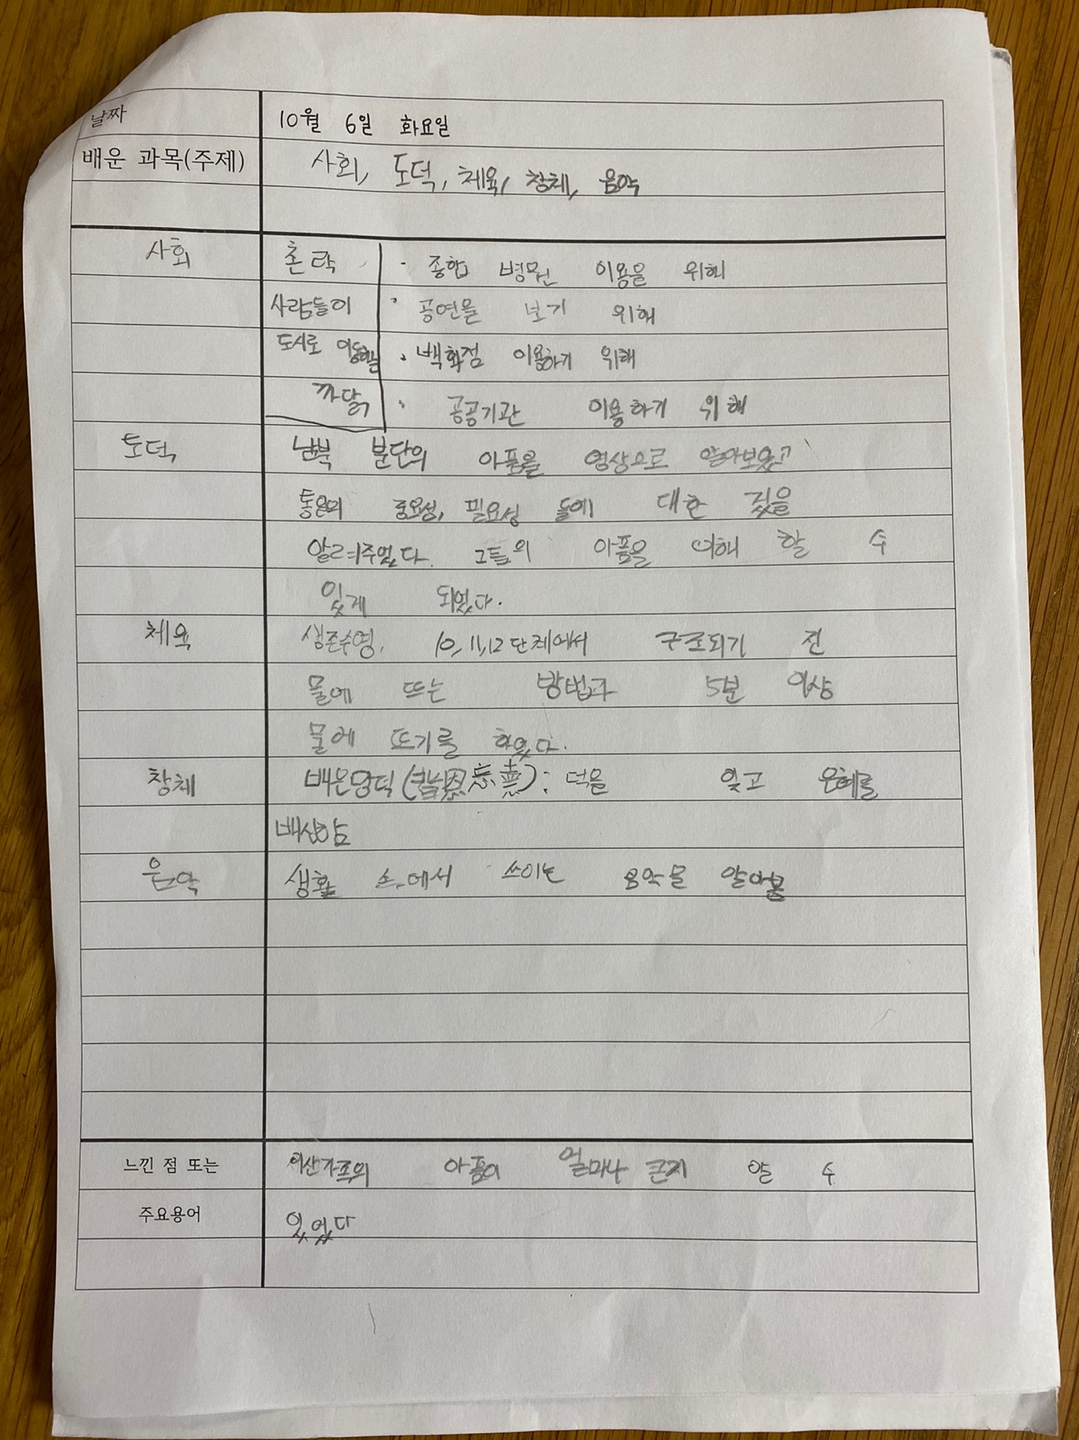 날짜 10월 6일 화요일
배운 과목(주제) 사회, 도덕, 체육, 창체, 음악
사회 촌락 · 종합 병원 이용을 위해
사람들이 · 공연을 보기 위해
도시로 이동하는 · 백화점 이용하기 위해
까닭 · 공공기관 이용하기 위해
도덕 남북 분단의 아픔을 영상으로 알아보았고
통일의 중요성, 필요성 등에 대한 것을
알려주었다. 그들의 아픔을 이해 할 수
있게 되었다.
체육 생존수영, 10, 11, 12 단계에서 구조되기 전
물에 뜨는 방법과 5분 이상
물에 뜨기를 하였다.
창체 배은망덕 (背恩忘德) : 덕을 잊고 은혜를
배신함
음악 생활 속에서 쓰이는 음악을 알아봄
느낀 점 또는 이산가족의 아픔이 얼마나 큰지 알 수
주요용어 있었다